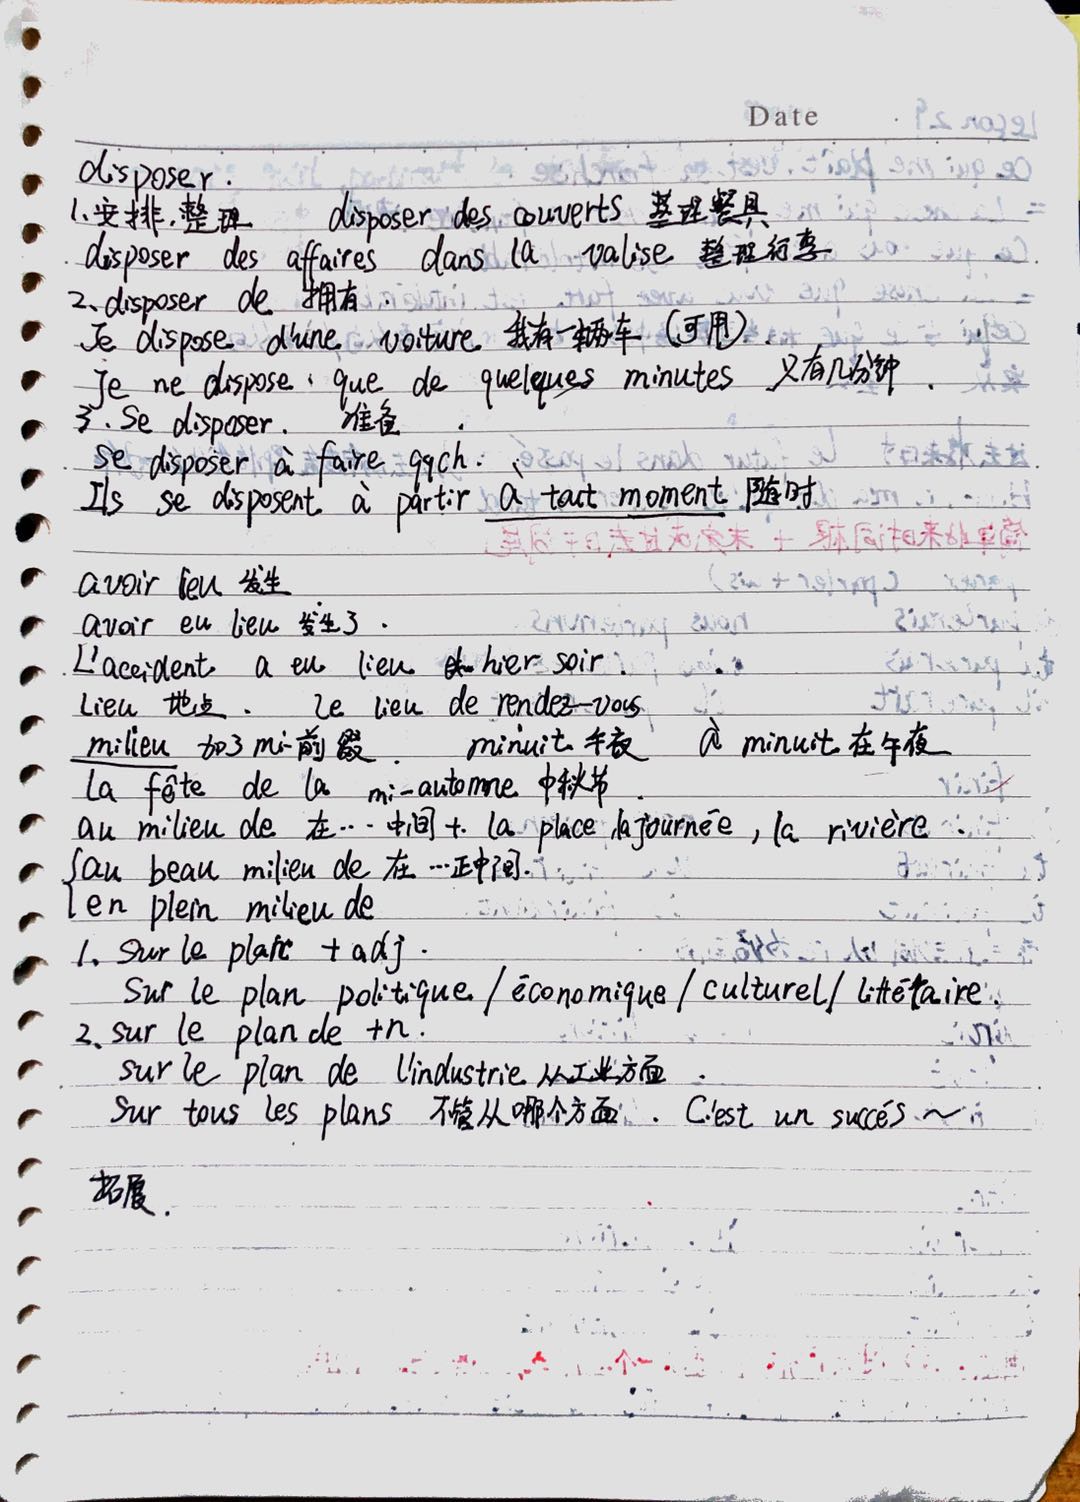 Date
disposer.
1.安排.整理 disposer des couverts 整理餐具
disposer des affaires dans la valise 整理行李
2.disposer de 拥有.
Je dispose d'une voiture 我有一辆车 (可用).
Je ne dispose que de quelques minutes 只有几分钟.
3.Se disposer. 准备.
se disposer à faire qqch.
Ils se disposent à partir à tout moment 随时
avoir lieu 发生
avoir eu lieu 发生了.
L'accident a eu lieu hier soir.
Lieu 地点. Le lieu de rendez-vous
milieu 加了mi-前缀. minuit 午夜 à minuit 在午夜
La fête de la mi-automne 中秋节.
au milieu de 在…中间+ la place, la journée, la rivière.
au beau milieu de 在…正中间.
en plein milieu de
1. Sur le plan + adj.
Sur le plan politique/économique/culturel/littéraire.
2.sur le plan de +n.
sur le plan de l'industrie 从工业方面.
Sur tous les plans 不管从哪个方面. C'est un succés ~
拓展.